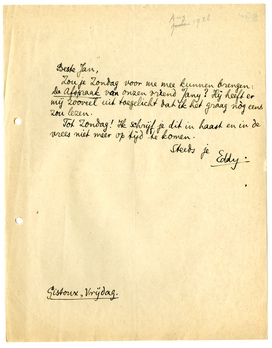 1928
Beste Jan,
Zou je Zondag voor me mee kunnen brengen:
De Afspraak van onzen vriend Jany? Hij heeft er
mij zooveel uit toegelicht dat ik het graag nog eens
zou lezen.
Tot Zondag! Ik schrijf je dit in haast en in de
vrees niet meer op tijd te komen.
Steeds je
Eddy.
Gistoux, Vrijdag.